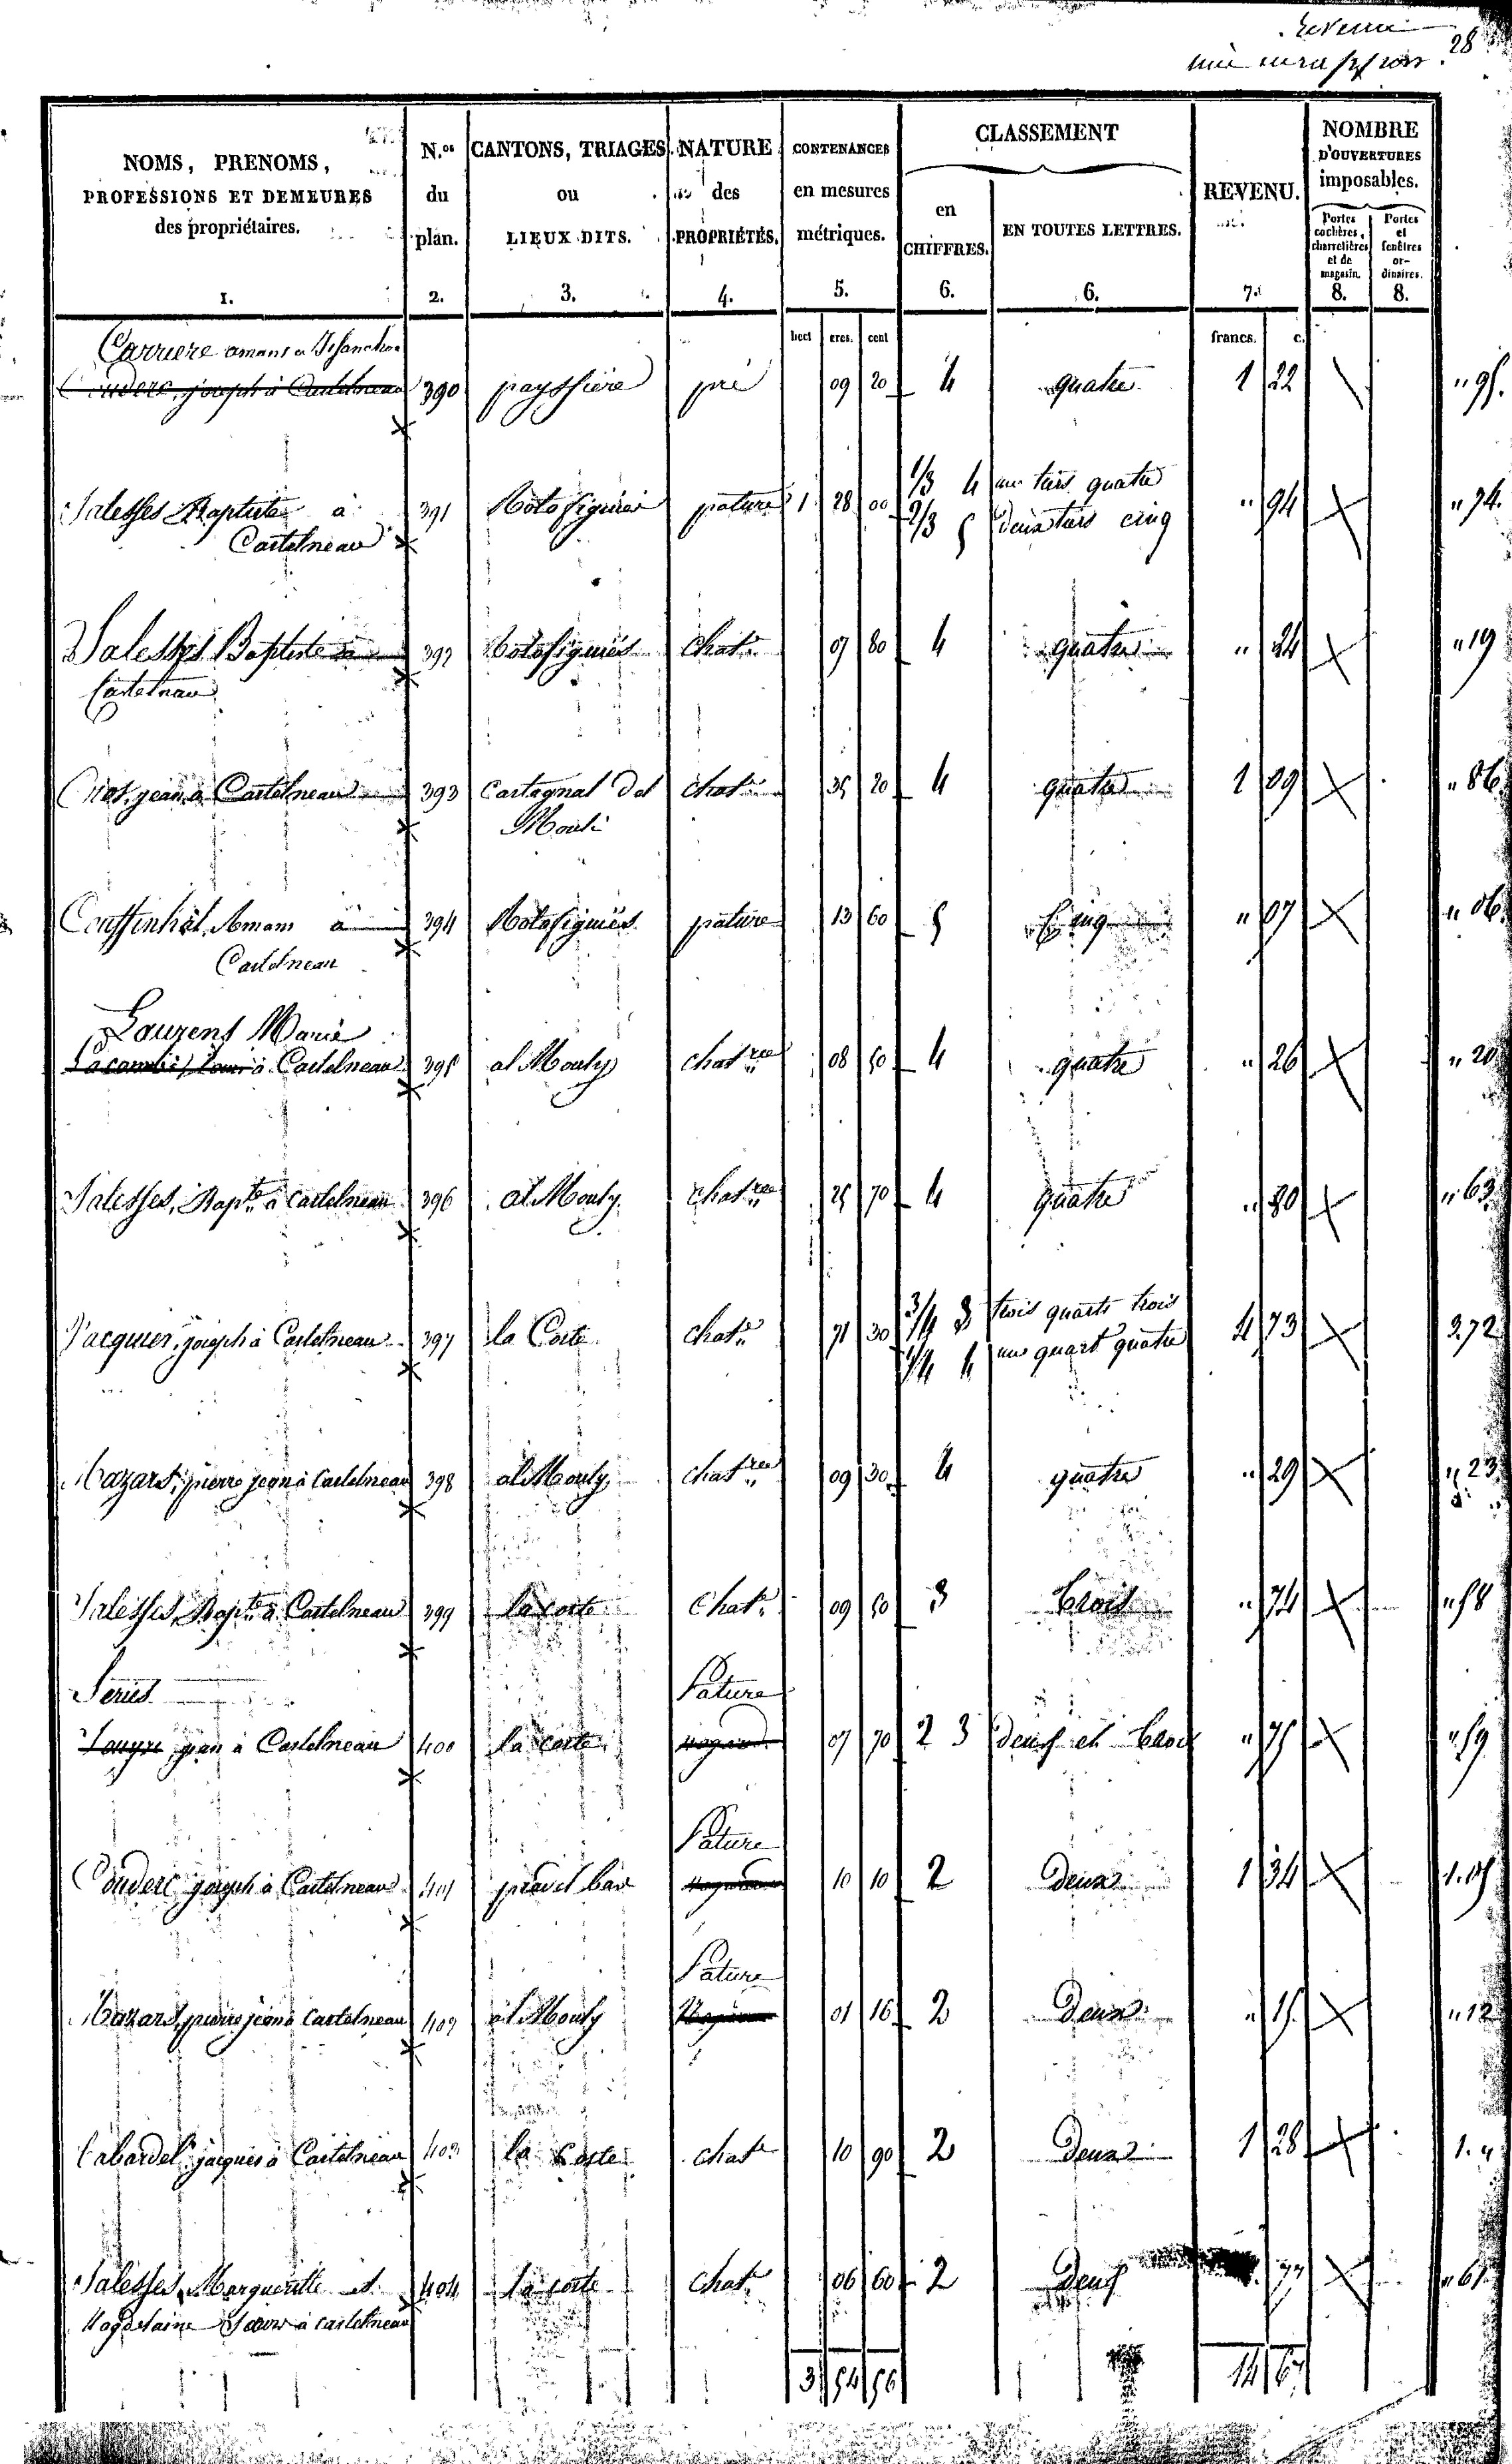 28
NOMS, PRENOMS, PROFESSIONS ET DEMEURES des propriétaires. 1.
N.os du plan. 2.
CANTONS, TRIAGES ou LIEUX DITS. 3.
NATURE des PROPRIÉTÉS. 4.
CONTENANCES en mesures métriques. 5.
CLASSEMENT
en CHIFFRES. 6.
EN TOUTES LETTRES. 6.
REVENU. 7.
NOMBRE D'OUVERTURES imposables.
Portes cochères, charretières et de magasin. 8.
Portes et fenêtres ordinaires. 8.
hect ares. cent francs. c.
Carriere amans a
Couderc, joseph à Castelneau 390 payssiere pré 09 20 4 quatre 1 22 " 95.
1/3 4 un tiers quatre
Salesses Baptiste à 391 pature 1 28 00 " 94 " 74.
2/3 5 deux tiers cinq
Castelneau
Salesses Baptiste à 392 chat.re 07 80 4 quatre " 24 " 19
Castelnau
jean à Castelneau 393 Castagnal del chat.re 35 20 4 quatre 1 09 " 86
Mouli
Couffinhal Amans à 394 pature 13 60 5 Cinq " 07 " 06
Castelneau
Laurens Marie
à Castelneau 395 al Mouly chat.re 08 50 4 quatre " 26 " 20
Salesses, Bapte à Castelneau 396 al Mouly chat.re 25 70 4 quatre " 80 " 63
3/4 3 trois quarts trois
Vacquier, joseph à Castelneau 397 la Coste chat.re 71 30 4 73 3.72
1/4 4 un quart quatre
Mazars, pierre jean à Castelneau 398 al Mouly chat.re 09 30 4 quatre " 29 " 23
Salesses, Bapte à Castelneau 399 la coste Chat.re 09 50 3 trois " 74 " 58
Series Pature
jean à Castelneau 400 la coste 07 70 2 3 deux et trois " 75 " 59
Pature
Couderc joseph à Castelneau 401 prad el bas 10 10 2 Deux 1 34 1.05
Pature
Mazars, pierre jean à Castelneau 402 al Mouly 01 16 2 Deux " 15 " 12
Cabardel jacques à Castelneau 403 la Coste chat.re 10 90 2 Deux 1 28 1. "
Salesses, Margueritte et 404 la coste Chat.re 06 60 2 Deux 77 " 61
Magdelaine Sœurs à castelneau
3 54 56 14 67